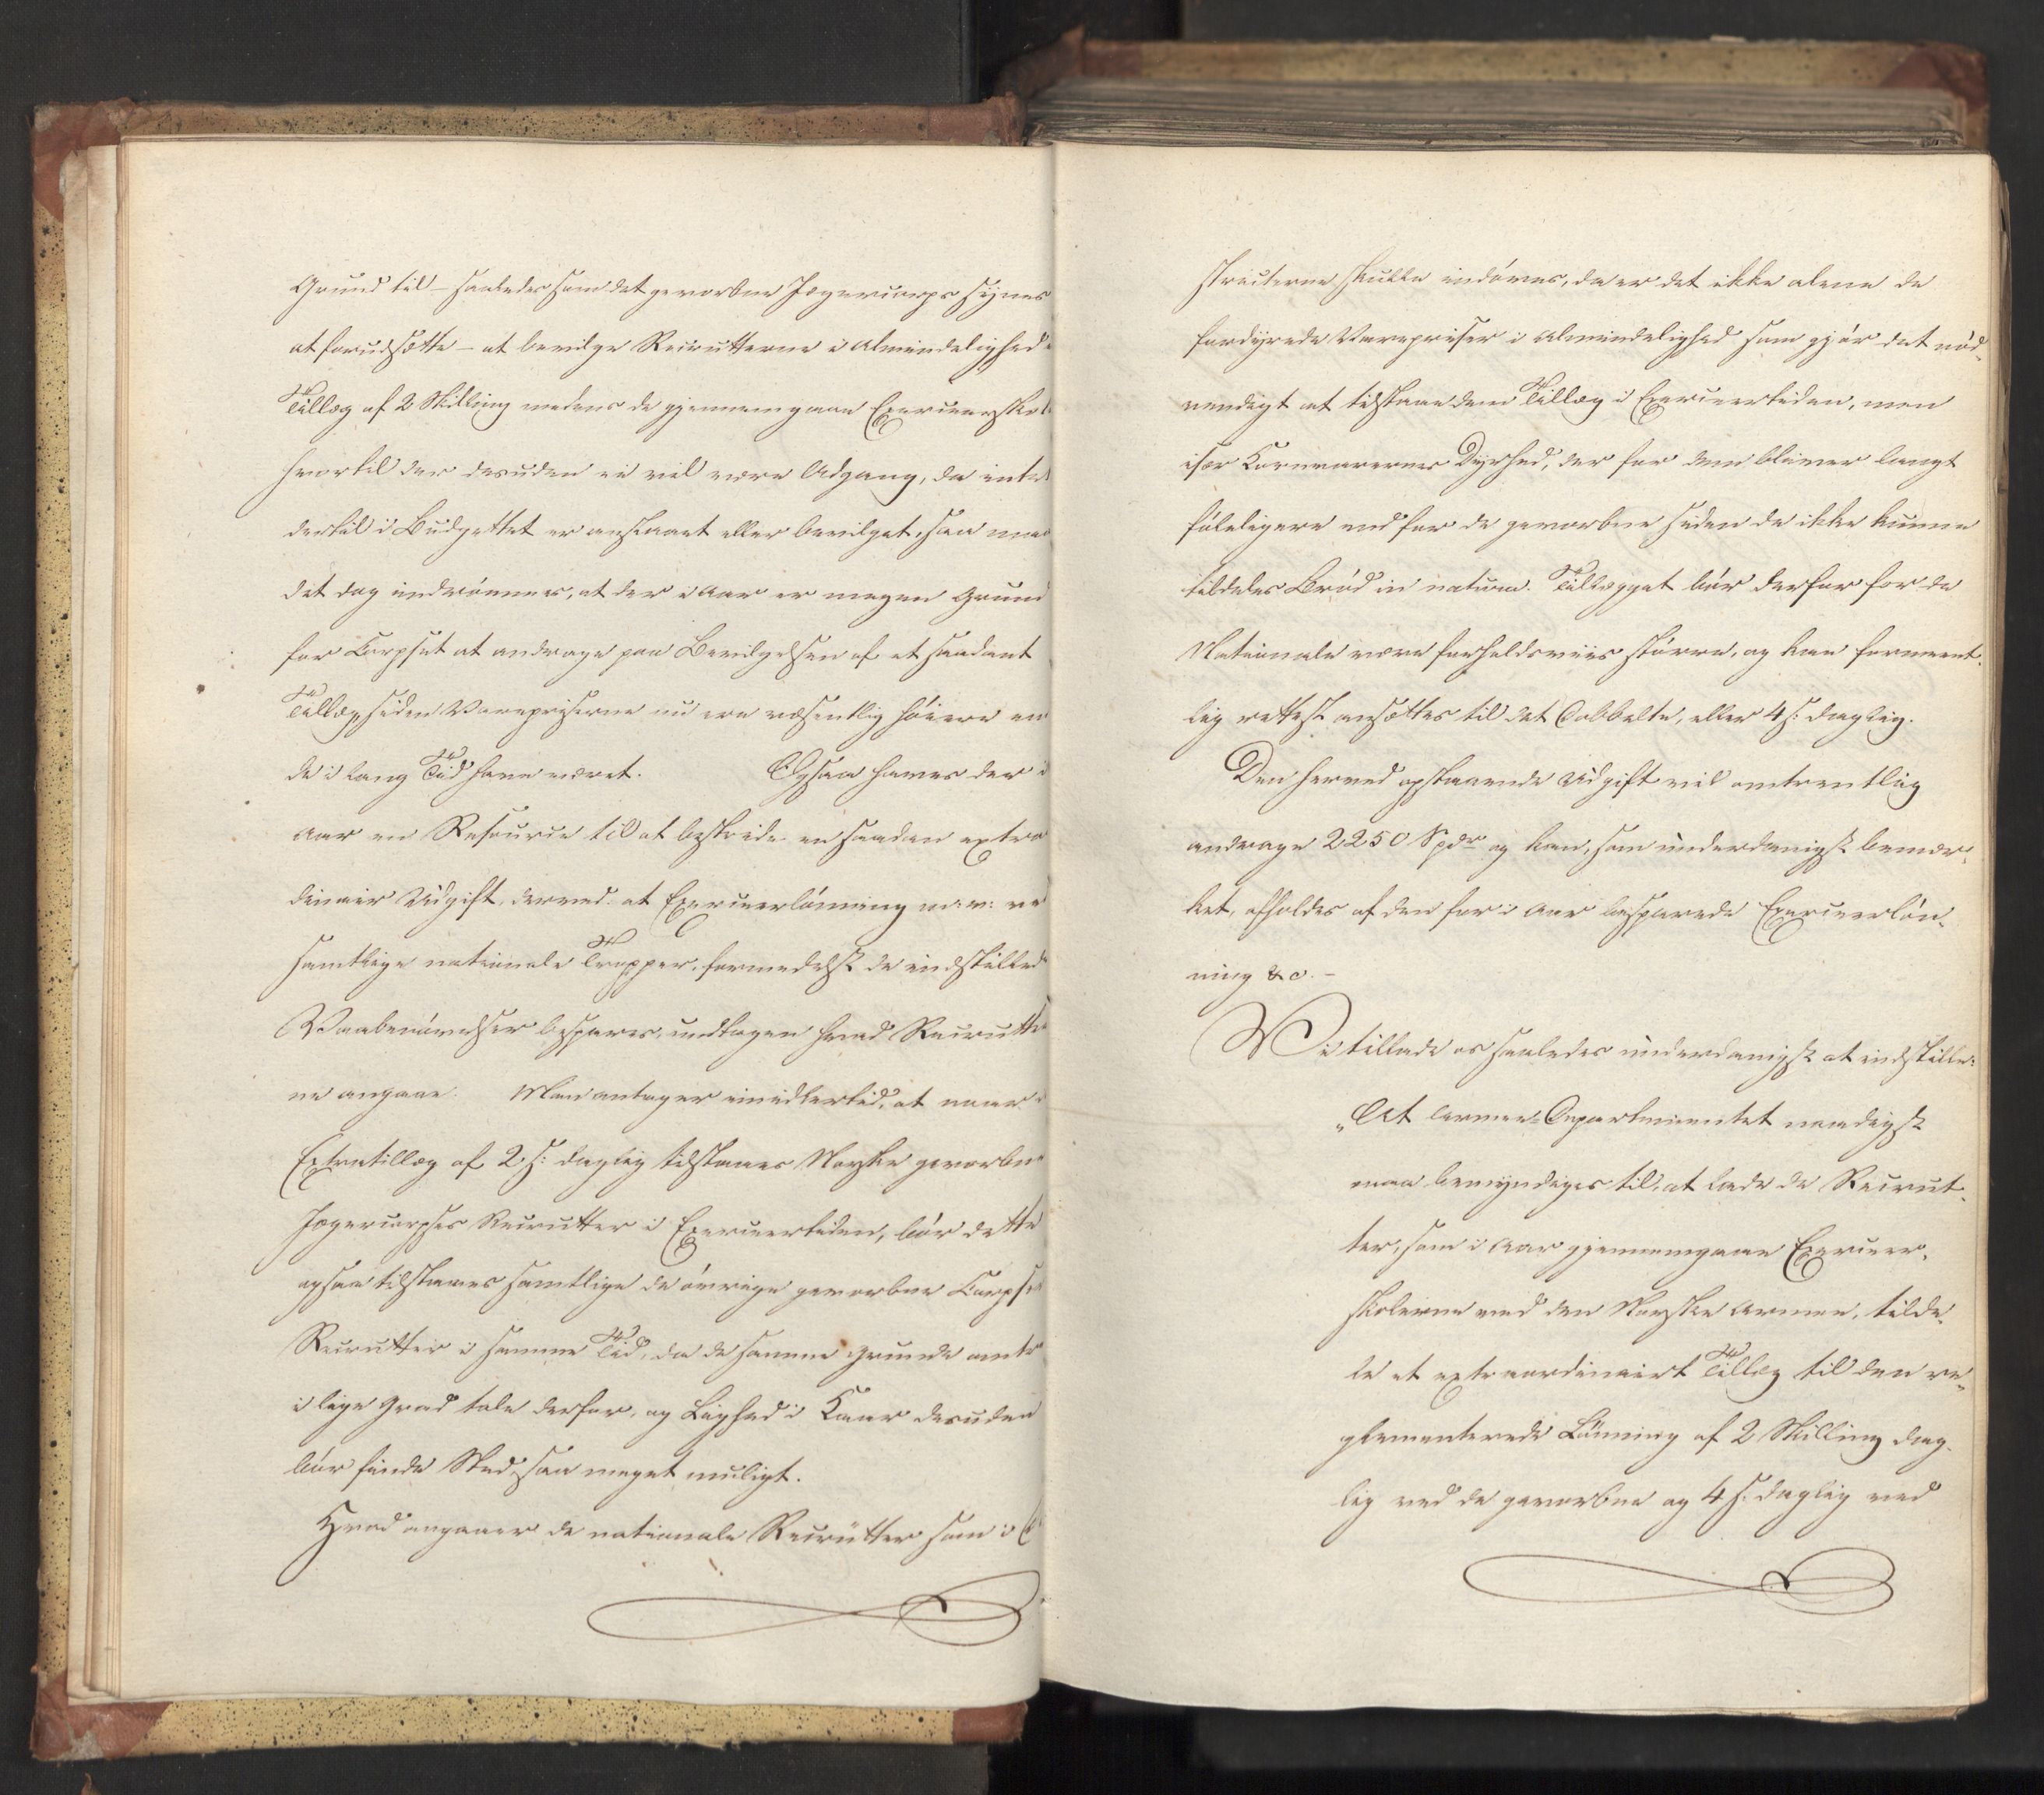 Grund til – saaledes som det gevorbne Jægercorps synes
at forudsætte – at bevilge Recrutterne i Almindelighed
Tillæg af 2 Skilling medens de gjennemgaae Exerceerskol
hvortil der desuden ei vil være Adgang, da intet
dertil i Budgettet er anslaaet eller bevilget, saa maa
det dog indrømmes, at der i Aar er megen Grund
for Corpset at andrage paa Bevilgelsen af et saadant
Tillæg, siden Varepriserne nu ere væsentlig høiere en
de i lang Tid have været. Ogsaa haves der i
Aar en Resource til at bestride en saadan extra
dinair Udgift, derved at Exerceerlønning m: v: ved
samtlige nationale Tropper, formedelst de indstillede
Vaabenøvelser bespares, undtagen hvad Recrutte
ne angaae. Man antager imidlertid, at naar
Extratillæg af 2 s: daglig tilstaaes Norske gevorbne
Jægercorpses Recrutter i Exerceertiden, bør dette
ogsaa tilstaaes samtlige de øvrige gevorbne Corpse
Recrutter i samme Tid, da de samme Grunde omtr
i lige Grad tale derfor, og Liighed i Kaar desuden
bør finde Sted saa meget muligt.
Hvad angaaer de nationale Recrutter som i
skulle indøves, da er det ikke alene de
fordyrede Varepriser i Almindelighed som gjør det nød-
vendigt at tilstaae dem Tillæg i Exerceertiden, men
især Kornvarernes Dyrhed, der for dem bliver langt
føleligere end for de gevorbne siden de ikke kunne
tildeles Brød in natura. Tillægget bør derfor for de
Nationale være forholdsviis større, og kan formeent-
lig rettest ansættes til det Dobbelte, eller 4 s: daglig.
Den herved opstaaende Udgift vil omtrentlig
andrage 2250 Spdr og kan, som underdanigst bemær-
ket, afholdes af den for i Aar besparede Exerceerløn-
ning &c. –
Vi tillade os saaledes underdanigst at indstille:
„At Armee-Departementet naadigst
maa bemyndiges til, at lade de Recrut-
ter, som i Aar gjennemgaae Exerceer-
skolerne ved den Norske Armee, tilde-
le et extraordinairt Tillæg til den re-
glementerede Lønning af 2 Skilling dag-
lig ved de gevorbne og 4 s: daglig ved